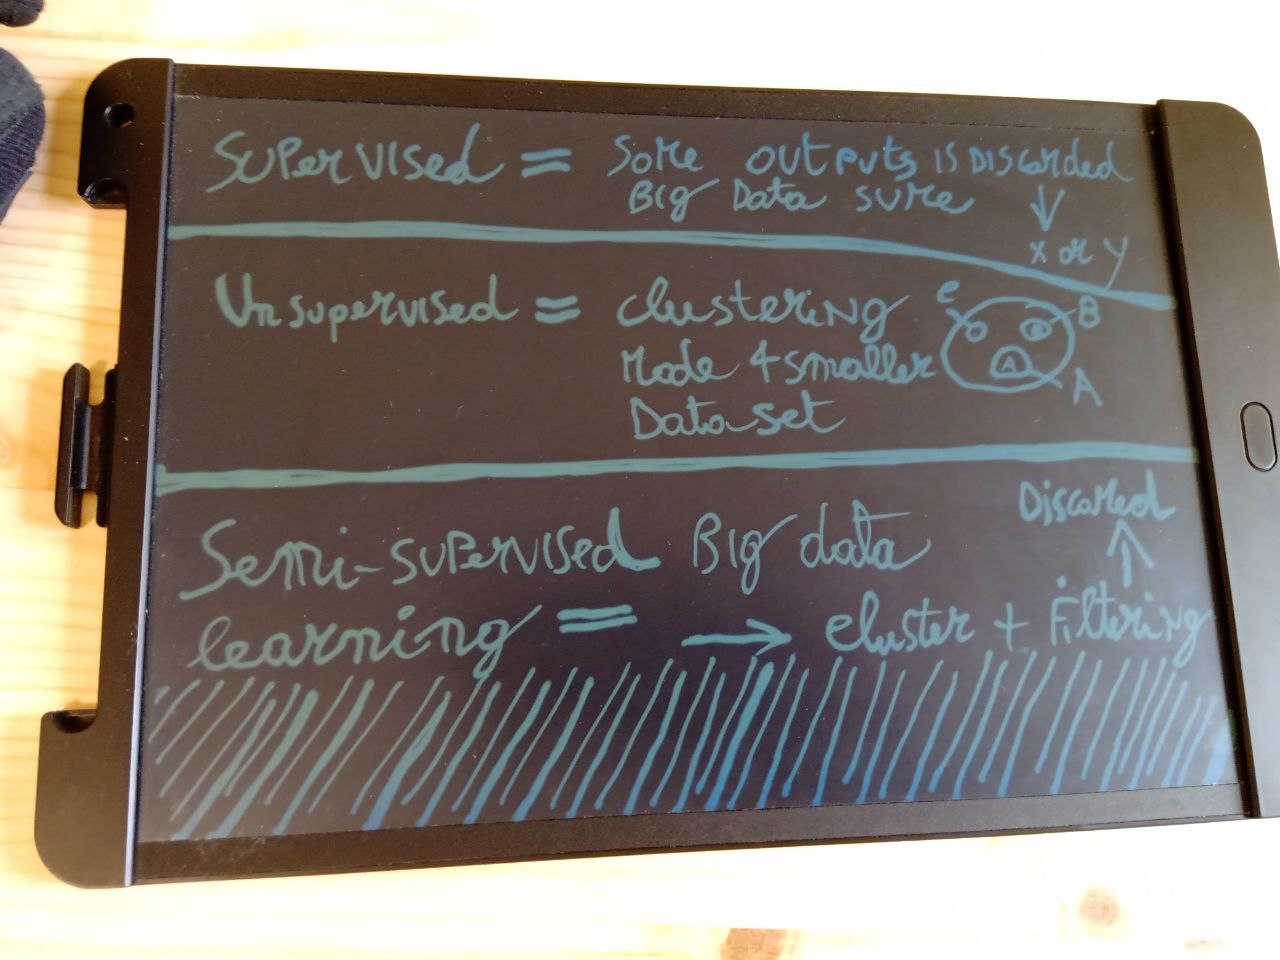 Supervised = Some outputs is Discarded
Big Data sure
↓
x or y
Unsupervised = clustering
Mode 4 smaller
Data set
C
B
A
A
Semi-supervised Big data
learning = → cluster + Filtering
↑
Discarded